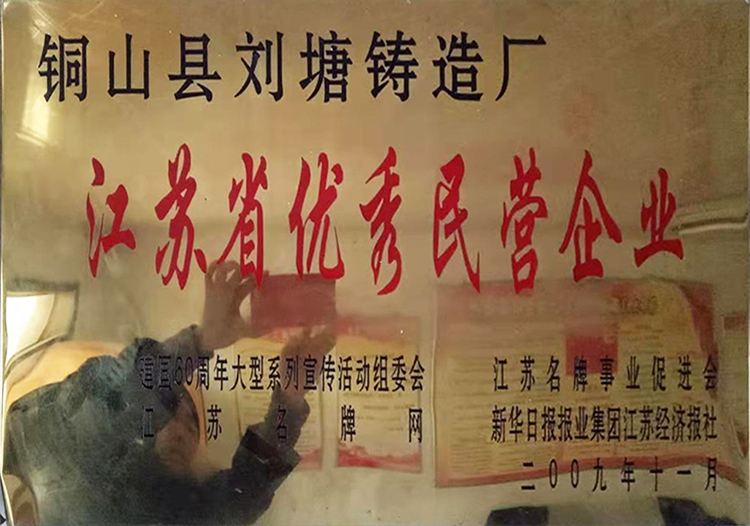 铜山县刘塘铸造厂
江苏省优秀民营企业
建国60周年大型系列宣传活动组委会
江苏名牌网
江苏名牌事业促进会
新华日报报业集团江苏经济报社
二00九年十一月